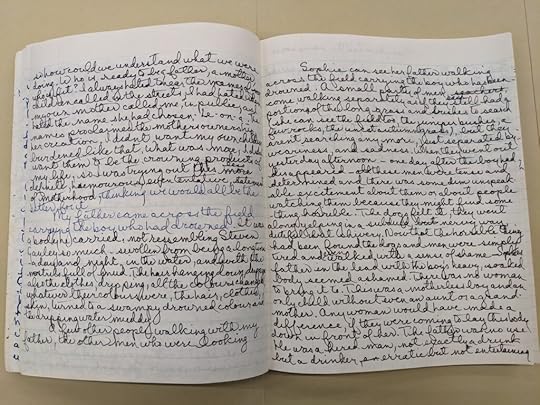 so how could we understand what we were
doing. Who is ready to be a father, a mother,
who is fit? I always hated the names
children called by the streets, I had hated
mother called me, in public, the
name she had chosen.
names proclaimed the mother's ownership
her creation. I didn't want my own children
burdened like that, what was more, I did
want them to be the crowning products of
my life, so I was trying out this more
humourous, tentative
of motherhood, thinking we would all be the
better for it.
My father came across the field
carrying the boy who had drowned. It was
a body he carried, not resembling Steve
Gauley so much, swollen from being a long time
a day and night, in the water, and with the
nostrils full of mud. The hair hanging down, dripping
the clothes, dripping, all the colours changed
whatever their colours were, the hair, clothes,
skin, turned to a swampy drowned colour
dripping water
A few other people walking with my
father, the other men who were looking
Sophie can see her father walking
across the field carrying the boy who has been
drowned. A small party of men,
some walking separately as if they still had a
portion of the long grass and brush to search
(she can see the field, the bushes, a
few rocks, the wet autumn grass), but they
aren't searching any more, just separated by
weariness, and sadness. When they went out
yesterday afternoon – one day after the boy had
disappeared – all these men were tense and
determined and there was some dim unspeak-
able excitement about them or about people
watching them because they might find some-
thing horrible. The dogs felt it, they went
along
Now that the horrible thing
had been found the dogs and men were simply
tired and walked with a sense of shame. Sophie's
father in the lead with the boy's heavy, soaked
body, seemed ashamed. There was no woman
to bring it to. This was a motherless boy and an
only child without even an aunt or a grand-
mother. Any woman would have made a
difference, if they were coming to lay this body
down in front of her. The father was no use.
He was a hired man, not exactly a drunk
but a drinker, an erratic but not entertaining